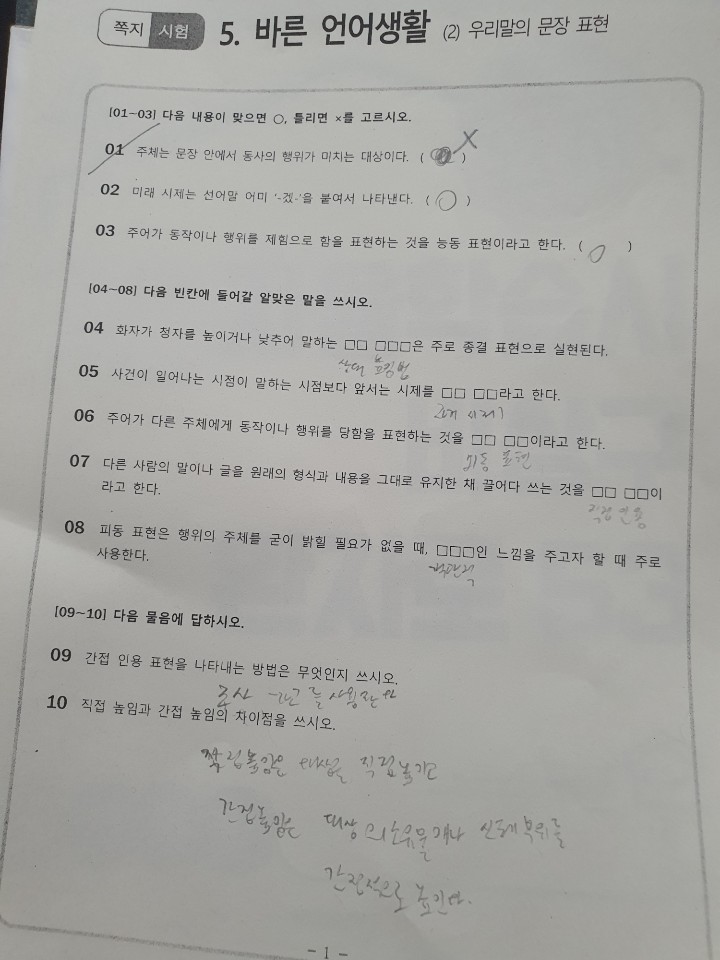 쪽지 시험 5. 바른 언어생활 (2) 우리말의 문장 표현
[01~03] 다음 내용이 맞으면 ○, 틀리면 ×를 고르시오.
01 주체는 문장 안에서 동사의 행위가 미치는 대상이다. ( ) X
02 미래 시제는 선어말 어미 '-겠-'을 붙여서 나타낸다. ( ○ )
03 주어가 동작이나 행위를 제힘으로 함을 표현하는 것을 능동 표현이라고 한다. ( ○ )
[04~08] 다음 빈칸에 들어갈 알맞은 말을 쓰시오.
04 화자가 청자를 높이거나 낮추어 말하는 □□ □□□은 주로 종결 표현으로 실현된다.
상대 높임법
05 사건이 일어나는 시점이 말하는 시점보다 앞서는 시제를 □□ □□라고 한다.
과거 시제
06 주어가 다른 주체에게 동작이나 행위를 당함을 표현하는 것을 □□ □□이라고 한다.
피동 표현
07 다른 사람의 말이나 글을 원래의 형식과 내용을 그대로 유지한 채 끌어다 쓰는 것을 □□ □□이
라고 한다.
직접 인용
08 피동 표현은 행위의 주체를 굳이 밝힐 필요가 없을 때, □□□인 느낌을 주고자 할 때 주로
객관적
사용한다.
[09~10] 다음 물음에 답하시오.
09 간접 인용 표현을 나타내는 방법은 무엇인지 쓰시오.
조사 -고를 사용한다
10 직접 높임과 간접 높임의 차이점을 쓰시오.
직접높임은 대상을 직접높이고
간접높임은 대상의 소유물개나 신체부위를
간접적으로 높인다.
- 1 -